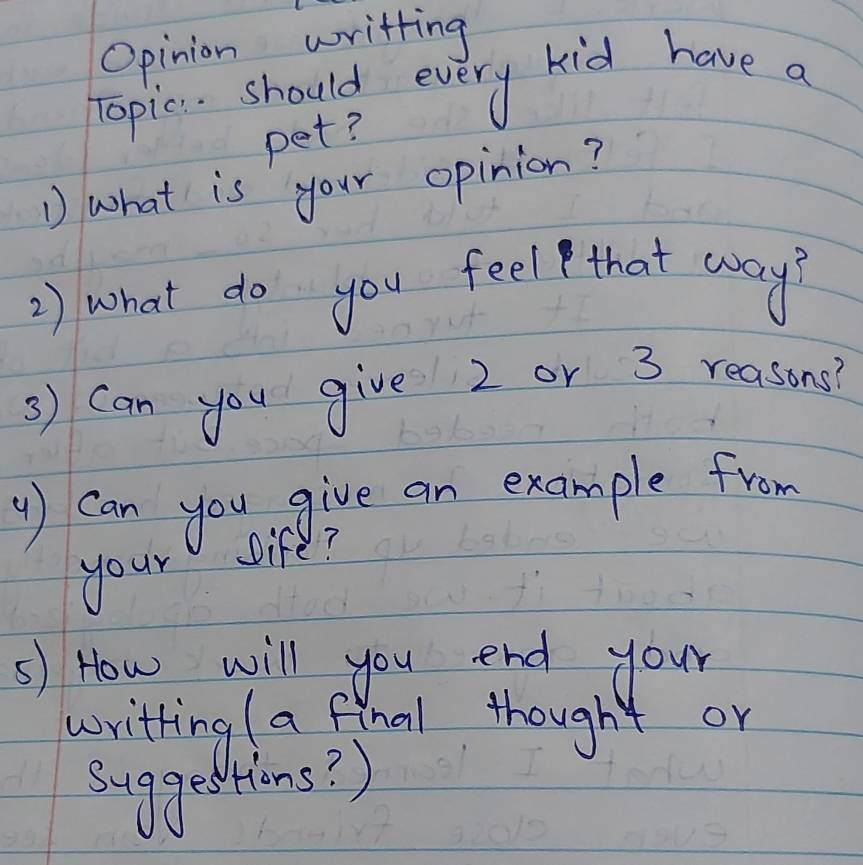 Opinion writting
Topic:- should every kid have a
pet?
1) What is your opinion?
2) What do you feel that way?
3) Can you give 2 or 3 reasons?
4) Can you give an example from
your life?
5) How will you end your
writting (a final thought or
suggestions?)